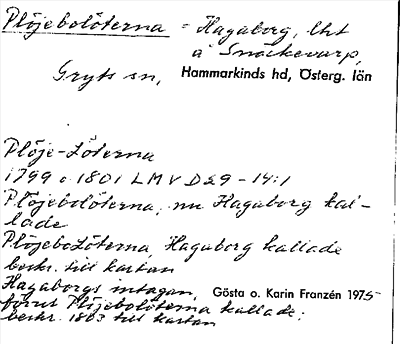 Plöjebolöterna = Hagaborg, lht
å Snäckevarp,
Gryts sn, Hammarkinds hd, Österg. län
Plöje-Löterna
1799 o. 1801 LMV D29-14:1
Plöjebolöterna, nu Hagaborg kal-
lade
PlöjeboLöterna, Hagaborg kallade
beskr. till kartan
Hagaborgs intagan, Gösta o. Karin Franzén 1975
förut Plöjebolöterna kallade;
beskr. 1803 till kartan